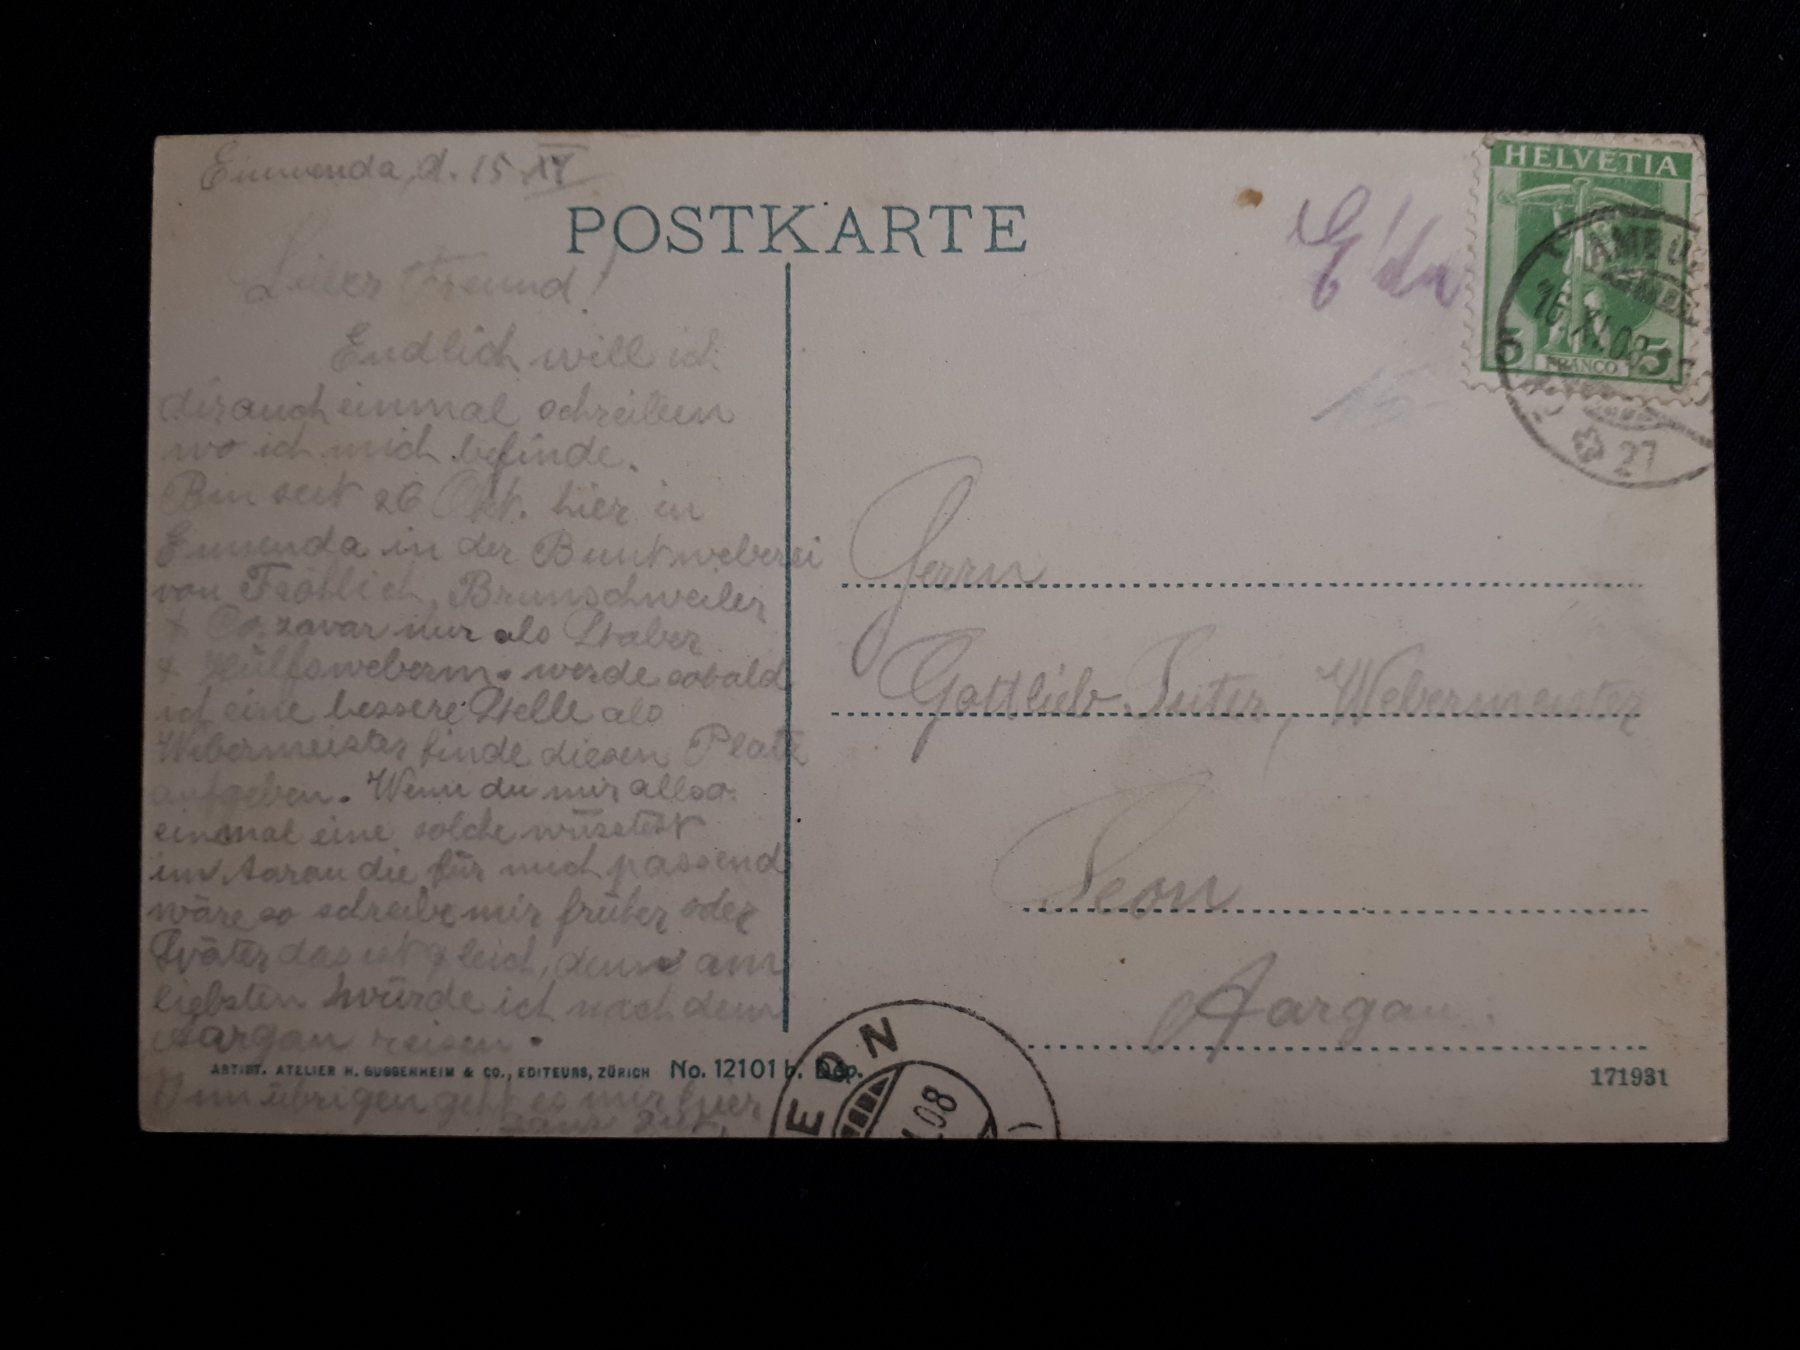 Ennenda, d. 15 XI
POSTKARTE
Lieber Freund!
Endlich will ich
dir auch einmal schreiben
wo ich mich befinde.
Bin seit 26 Okt. hier in
Ennenda in der Buntweberei
von Fröhlich, Brunschweiler
+ Co. zwar nur als
+ Hülfsweberm. werde sobald
ich eine bessere Stelle als
Webermeister finde diesen Platz
aufgeben. Wenn du mir allso
einmal eine solche wüsstest
im Aarau die für mich passend
wäre so schreibe mir früher oder
später das ist gleich, denn am
liebsten würde ich nach dem
Aargau reisen.
Im übrigen geht es mir hier
ganz gut.
ARTIST. ATELIER H. GUGGENHEIM & CO., EDITEURS, ZÜRICH No. 12101 b. Dép.
HELVETIA
5 FRANCO 5
AMBU
16.XI.08
27
15-
Herrn
Gottlieb Suter, Webermeister
Seon
Aargau.
171931
SEON
08